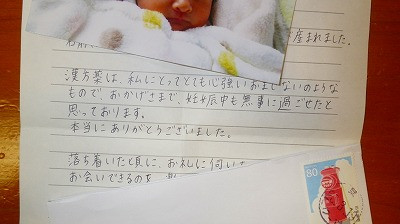 産まれました。
漢方薬は、私にとってとても心強いおまじないのような
もので、おかげさまで、妊娠中も無事に過ごせたと
思っております。
本当にありがとうございました。
落ち着いた頃に、お礼に伺いた
お会いできるのを
80